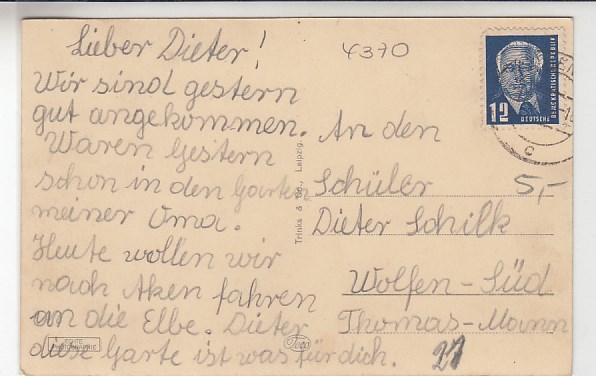 Lieber Dieter!
Wir sind gestern
gut angekommen.
Waren Gestern
schon in den Garten
meiner Oma.
Heute wollen wir
nach Aken fahren
an die Elbe. Dieter
diese Garte ist was für dich.
4370
12 DEUTSCHE
DEMOKRATISCHE REPUBLIK
C
An den
Schüler
5,-
Dieter Schilk
Wolfen-Süd
Thomas-Mann
27
Trinks & Co., Leipzig
ECHTE
PHOTOGRAPHIE